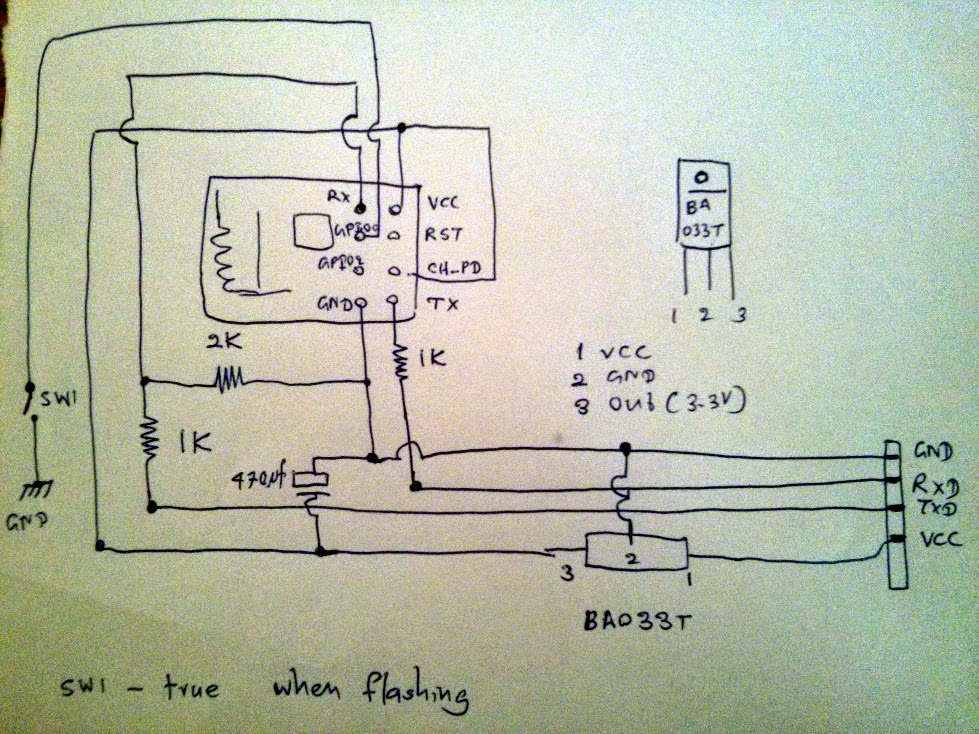 RX
VCC
GPIO0
RST
GPIO2
CH_PD
GND
TX
2K
1K
SW1
1K
470µf
GND
BA
033T
1 2 3
1 VCC
2 GND
3 Out (3-3V)
GND
RXD
TXD
VCC
3
2
1
BA033T
SW1 - true when flashing